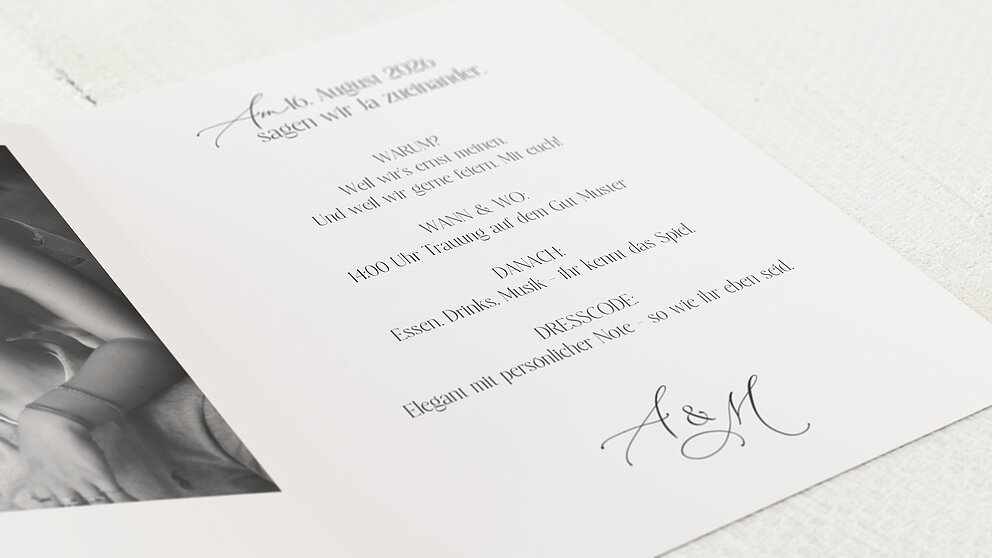 Am 16. August 2026
sagen wir Ja zueinander.
WARUM?
Weil wir's ernst meinen.
Und weil wir gerne feiern. Mit euch!
WANN & WO:
14:00 Uhr Trauung auf dem Gut Muster
DANACH:
Essen. Drinks. Musik - ihr kennt das Spiel.
DRESSCODE:
Elegant mit persönlicher Note - so wie ihr eben seid.
A & M